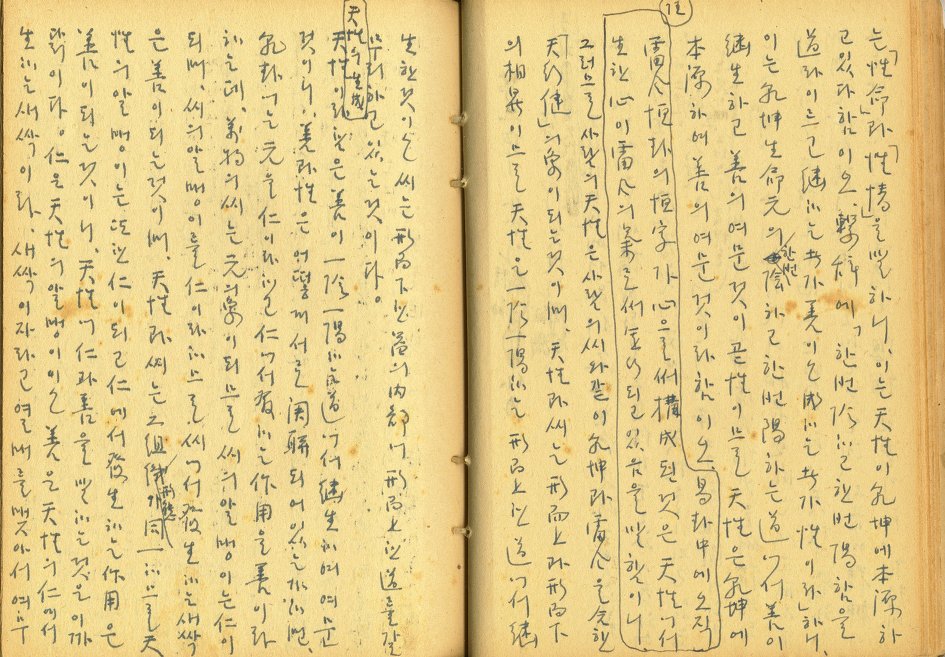 는「性命과」「性情」을 말하니, 이는 天性이 乾坤에 本源하
고 있다 함이오, 繫辭에「한번 陰하고 한번 陽함을
道라 이르고 繼하는 者가 善이오 成하는 者가 性이라」하니,
이는 乾坤生命元의 한번 陰하고 한번 陽하는 道에서 善이
繼生하고 善의 여문것이 곧 性이므로 天性은 乾坤에
本源하여 善의 여문 것이라 함이오 易卦中에 오직
註
雷風恒卦의 恒字가 心을써 構成된것은 天性에서
生한 心이 雷風의 象으로써 되고 있음을 말함이니
그러므로 사람의 天性은 사람의 씨와 같이 乾坤과 雷風을 合한
「天行健」의 象이 되는것이며, 天性과 씨는 形而上과 形而下
의 相異이므로 天性은 一陰一陽하는 形而上인 道에서 繼
生한것이오 씨는 形而下인 의 內部에 形而上인 道를 갈
무리하고 있는것이다.
天性의 生成
天性이라 함은 善이 一陰一陽하는 道에서 繼生하여 여문
것이니, 善과 性은 어떻게 서로 関聯되어 있는가 하면,
乾卦에는 元을 仁이라 하고 仁에서 發하는 作用을 善이라
하는데, 萬物의 씨는 元의 象이 되므로 씨의 알맹이는 仁이
되며, 씨의 알맹이를 仁이라 하므로 씨에서 發生하는 새싹
은 善이 되는것이며, 天性과 씨는 그 組織形態가 同一하므로 天
性의 알맹이는 또한 仁이 되고 仁에서 發生하는 作用은
善이 되는것이니, 天性에 仁과 善을 말하는 것은 이 까
닭이다. 仁은 天性의 알맹이이오 善은 天性의 仁에서
生하는 새싹이라, 새싹이 자라고 열매를 맺아서 여무